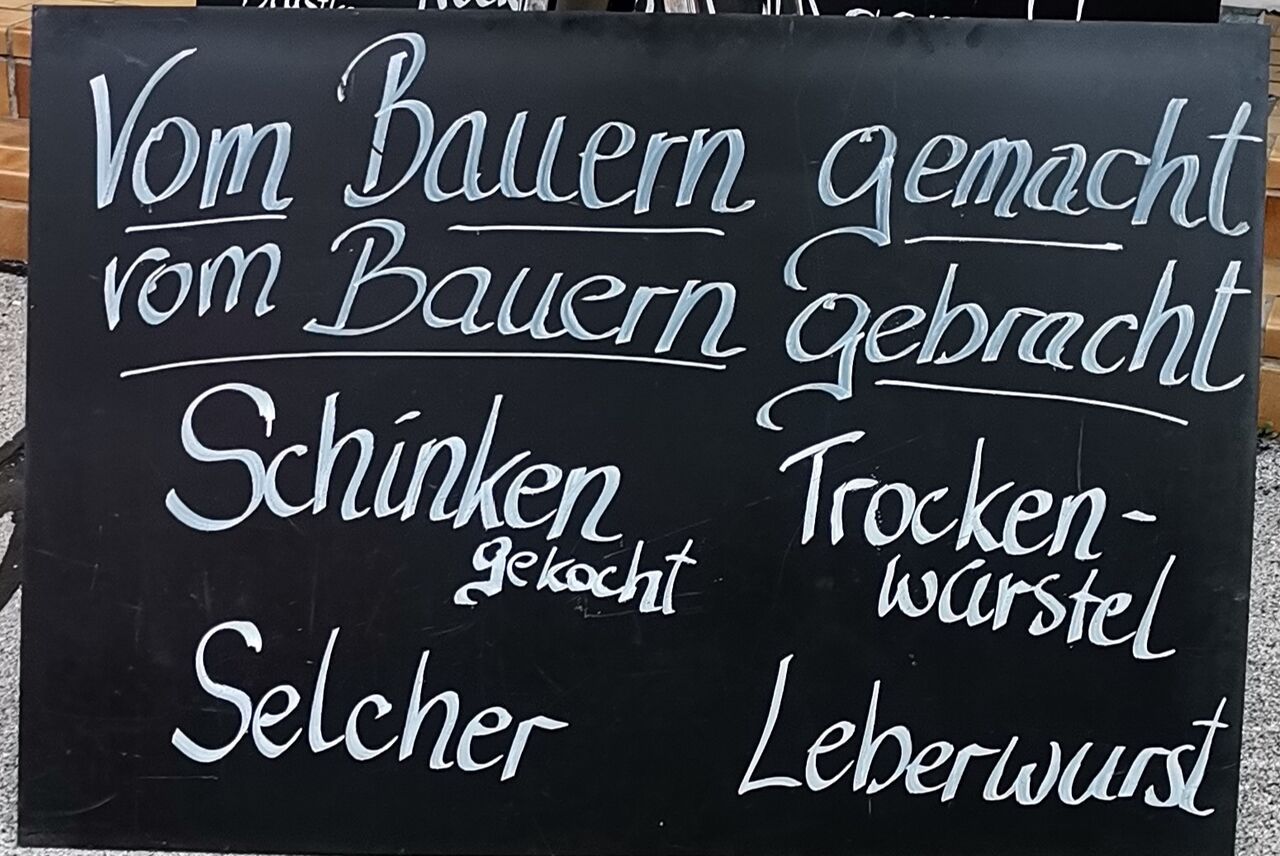 Vom Bauern gemacht
vom Bauern gebracht
Schinken
gekocht
Selcher
Trocken-
würstel
Leberwurst